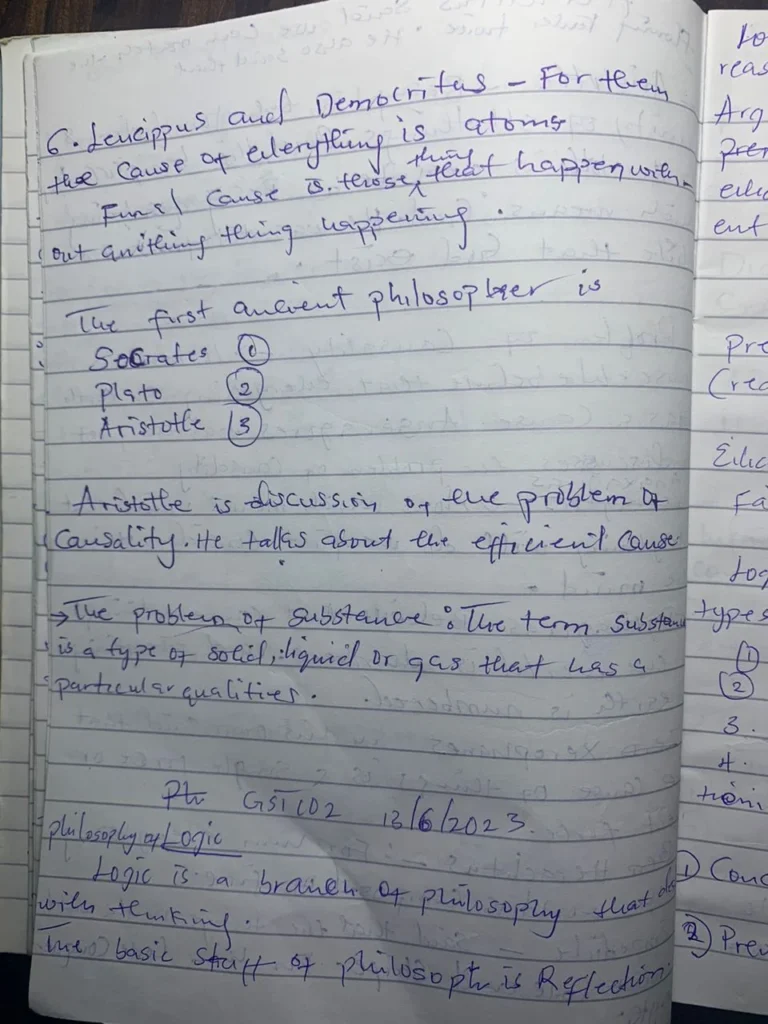 6. Leucippus and Democritus - For them
the cause of everything is atoms
Final cause is those thing that happen with-
out anithing thing happening.
The first ancient philosopher is
Socrates ①
Plato ②
Aristotle ③
Aristotle is discussion of the problem of
Causality. He talks about the efficient cause
→ The problem of substance: The term substan
is a type of solid, liquid or gas that has a
particular qualities.
GST102 13/6/2023.
philosophy of Logic
Logic is a branch of philosophy that
with thinking.
The basic stuff of is Reflection.
reas
Arg
ent
Pre
Fa
Log
types
①
②
3.
4.
1) Conc
2) Prem